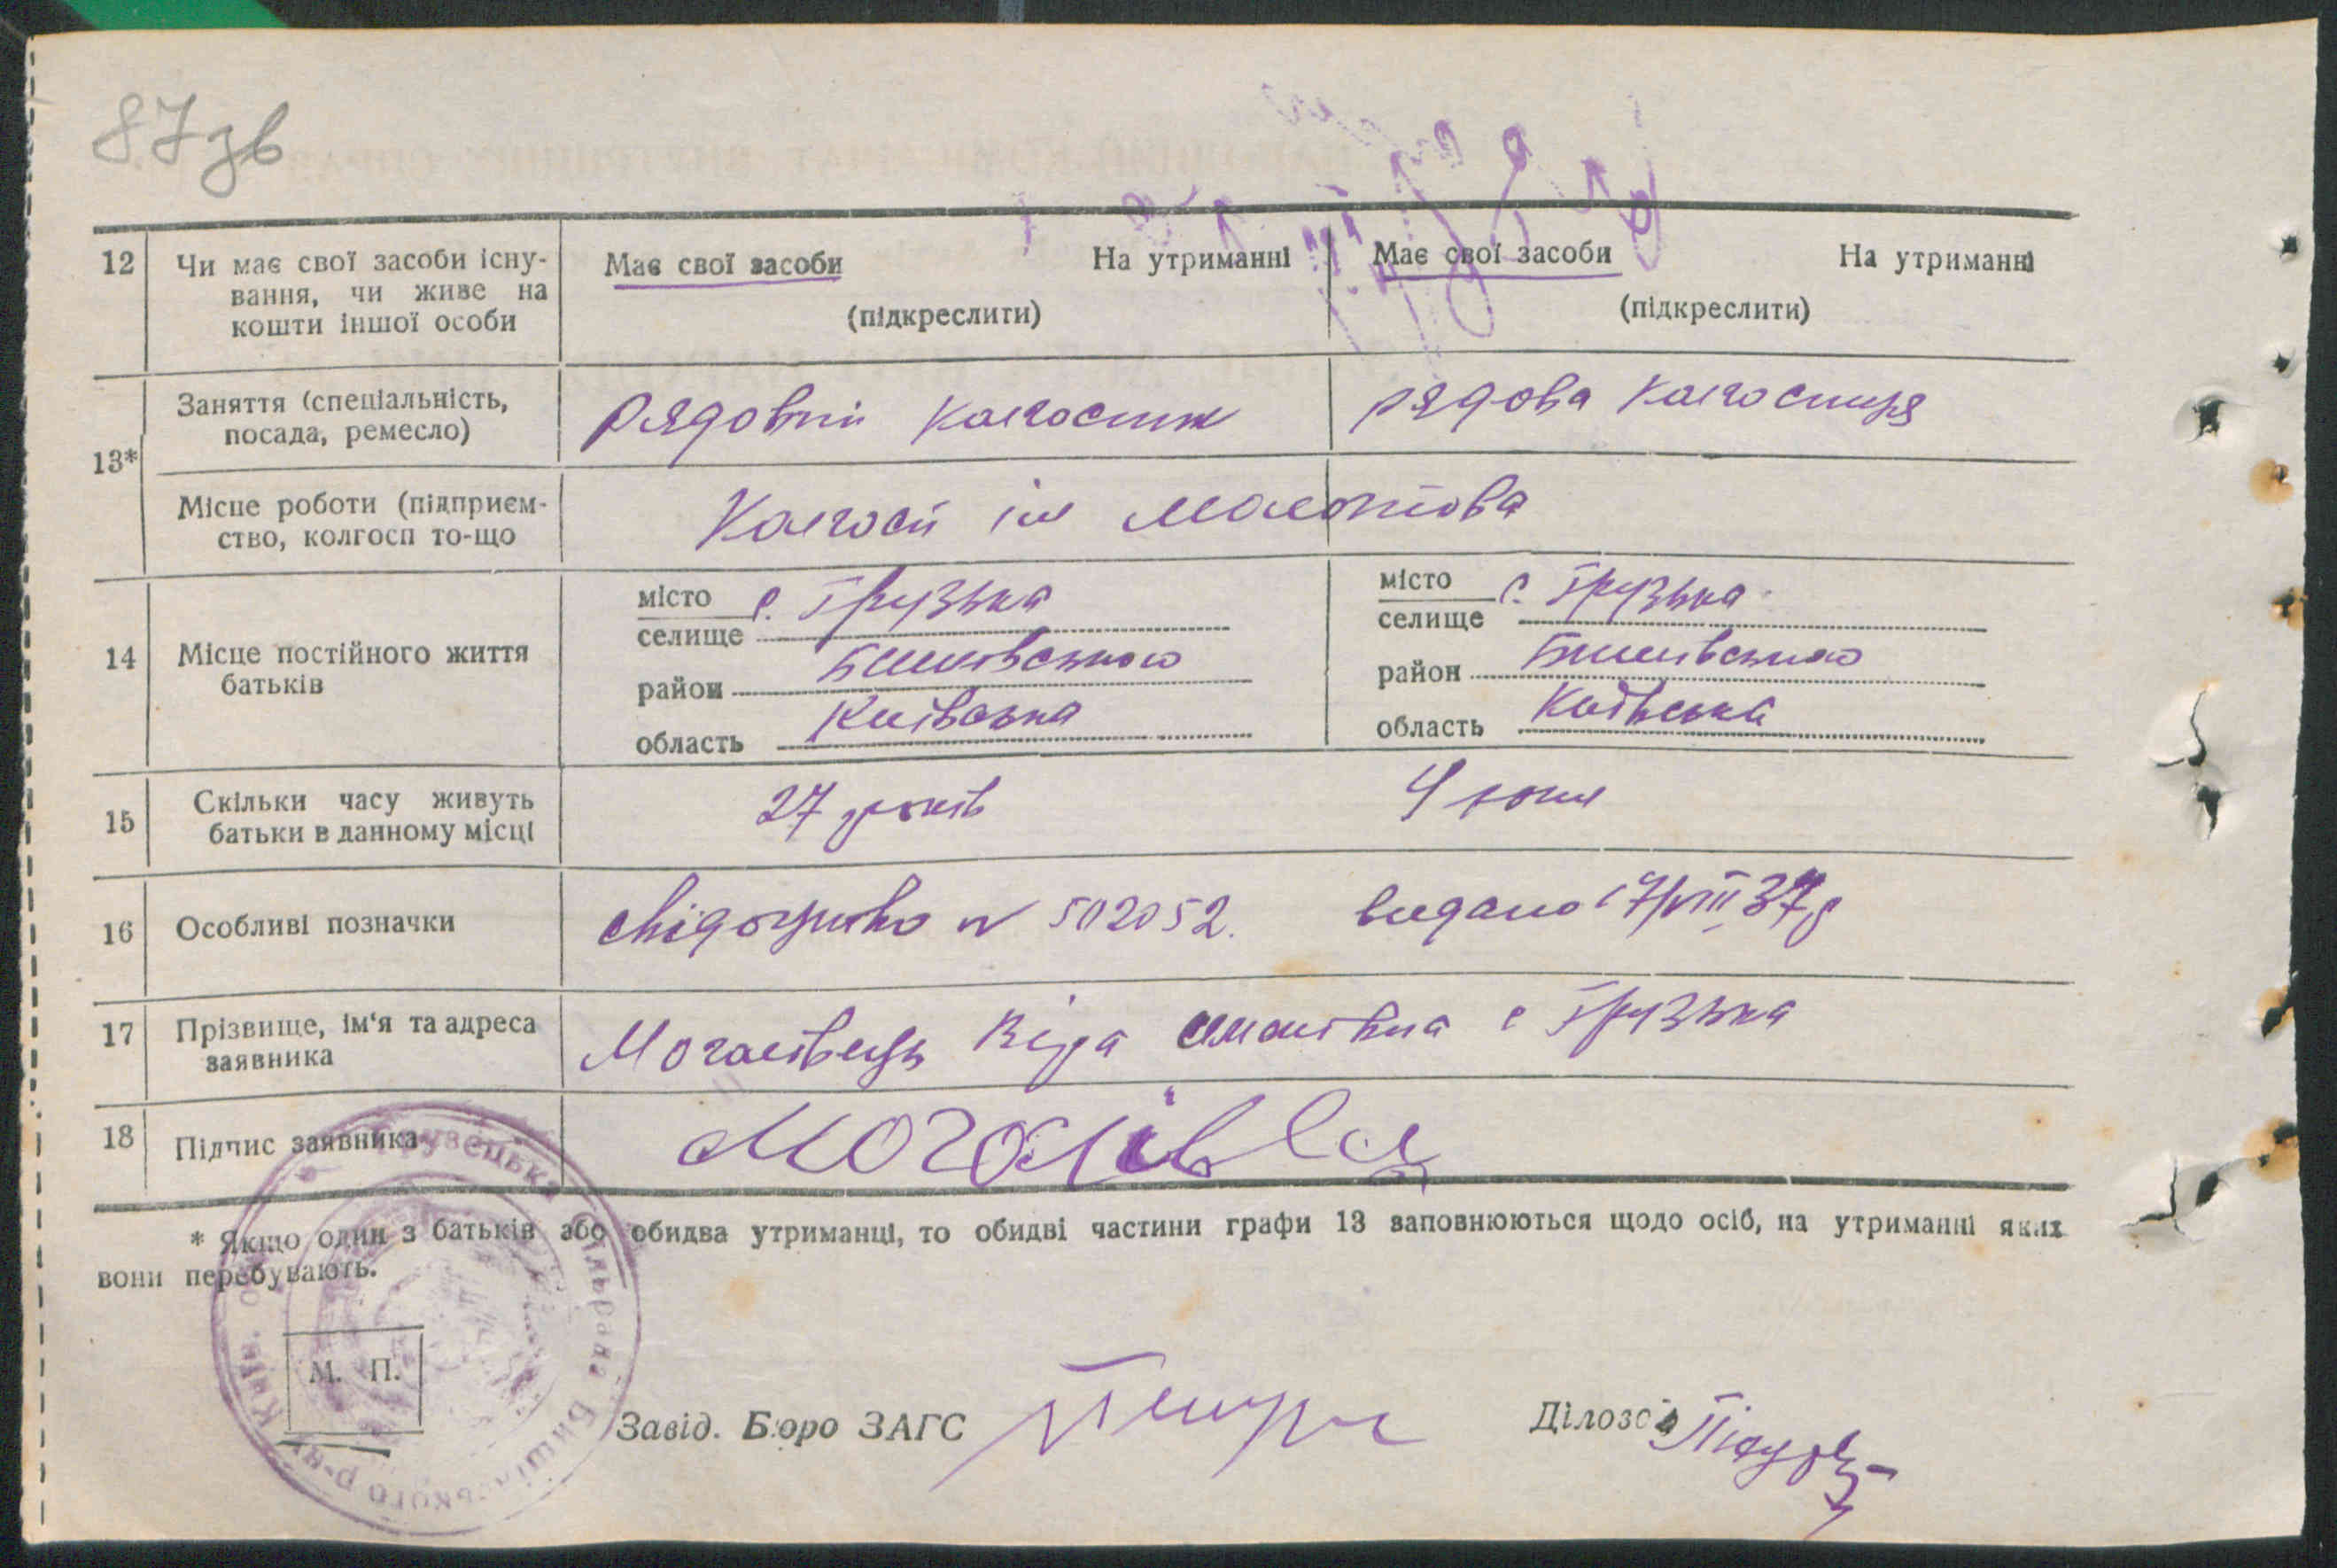 87зв
12 Чи має свої засоби існу- Має свої засоби На утриманні Має свої засоби На утриманні
вання, чи живе на
кошти іншої особи (підкреслити) (підкреслити)
13* Заняття (спеціальність, рядовий колгоспник рядова колгоспниця
посада, ремесло)
Місце роботи (підприєм- Колгосп ім Молотова
ство, колгосп то-що
14 Місце постійного життя батьків
місто с. Грузька місто с. Грузька
селище селище
район Бишівського район Бишівського
область Київська область Київська
15 Скільки часу живуть 27 років 4 роки
батьки в данному місці
16 Особливі позначки свідоцтво № 502052. видано 17/VIII 37р
17 Прізвище, ім'я та адреса Могалівець Віра с Грузька
заявника
18 Підпис заявника Могалівец
* Якщо один з батьків або обидва утриманці, то обидві частини графи 13 заповнюються щодо осіб, на утриманні яких
вони перебувають.
Грузецька сільрада Бишівського р-ну Київ. обл.
М. П.
Завід. Бюро ЗАГС Діловод